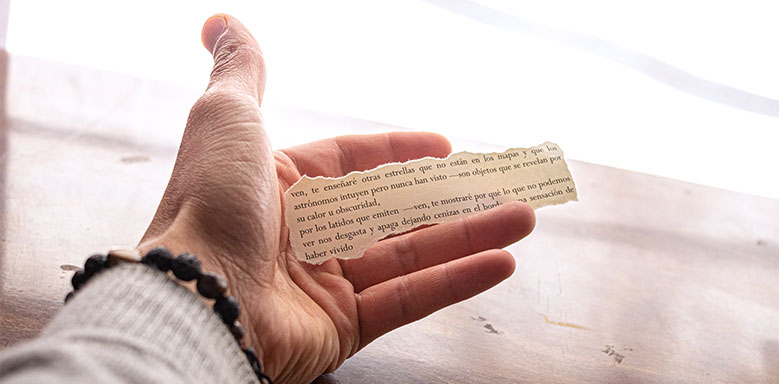 ven, te enseñaré otras estrellas que no están en los mapas y que los
astrónomos intuyen pero nunca han visto —son objetos que se revelan por
su calor u obscuridad,
por los latidos que emiten —ven, te mostraré por qué lo que no podemos
ver nos desgasta y apaga dejando cenizas en el borde sensación de
haber vivido